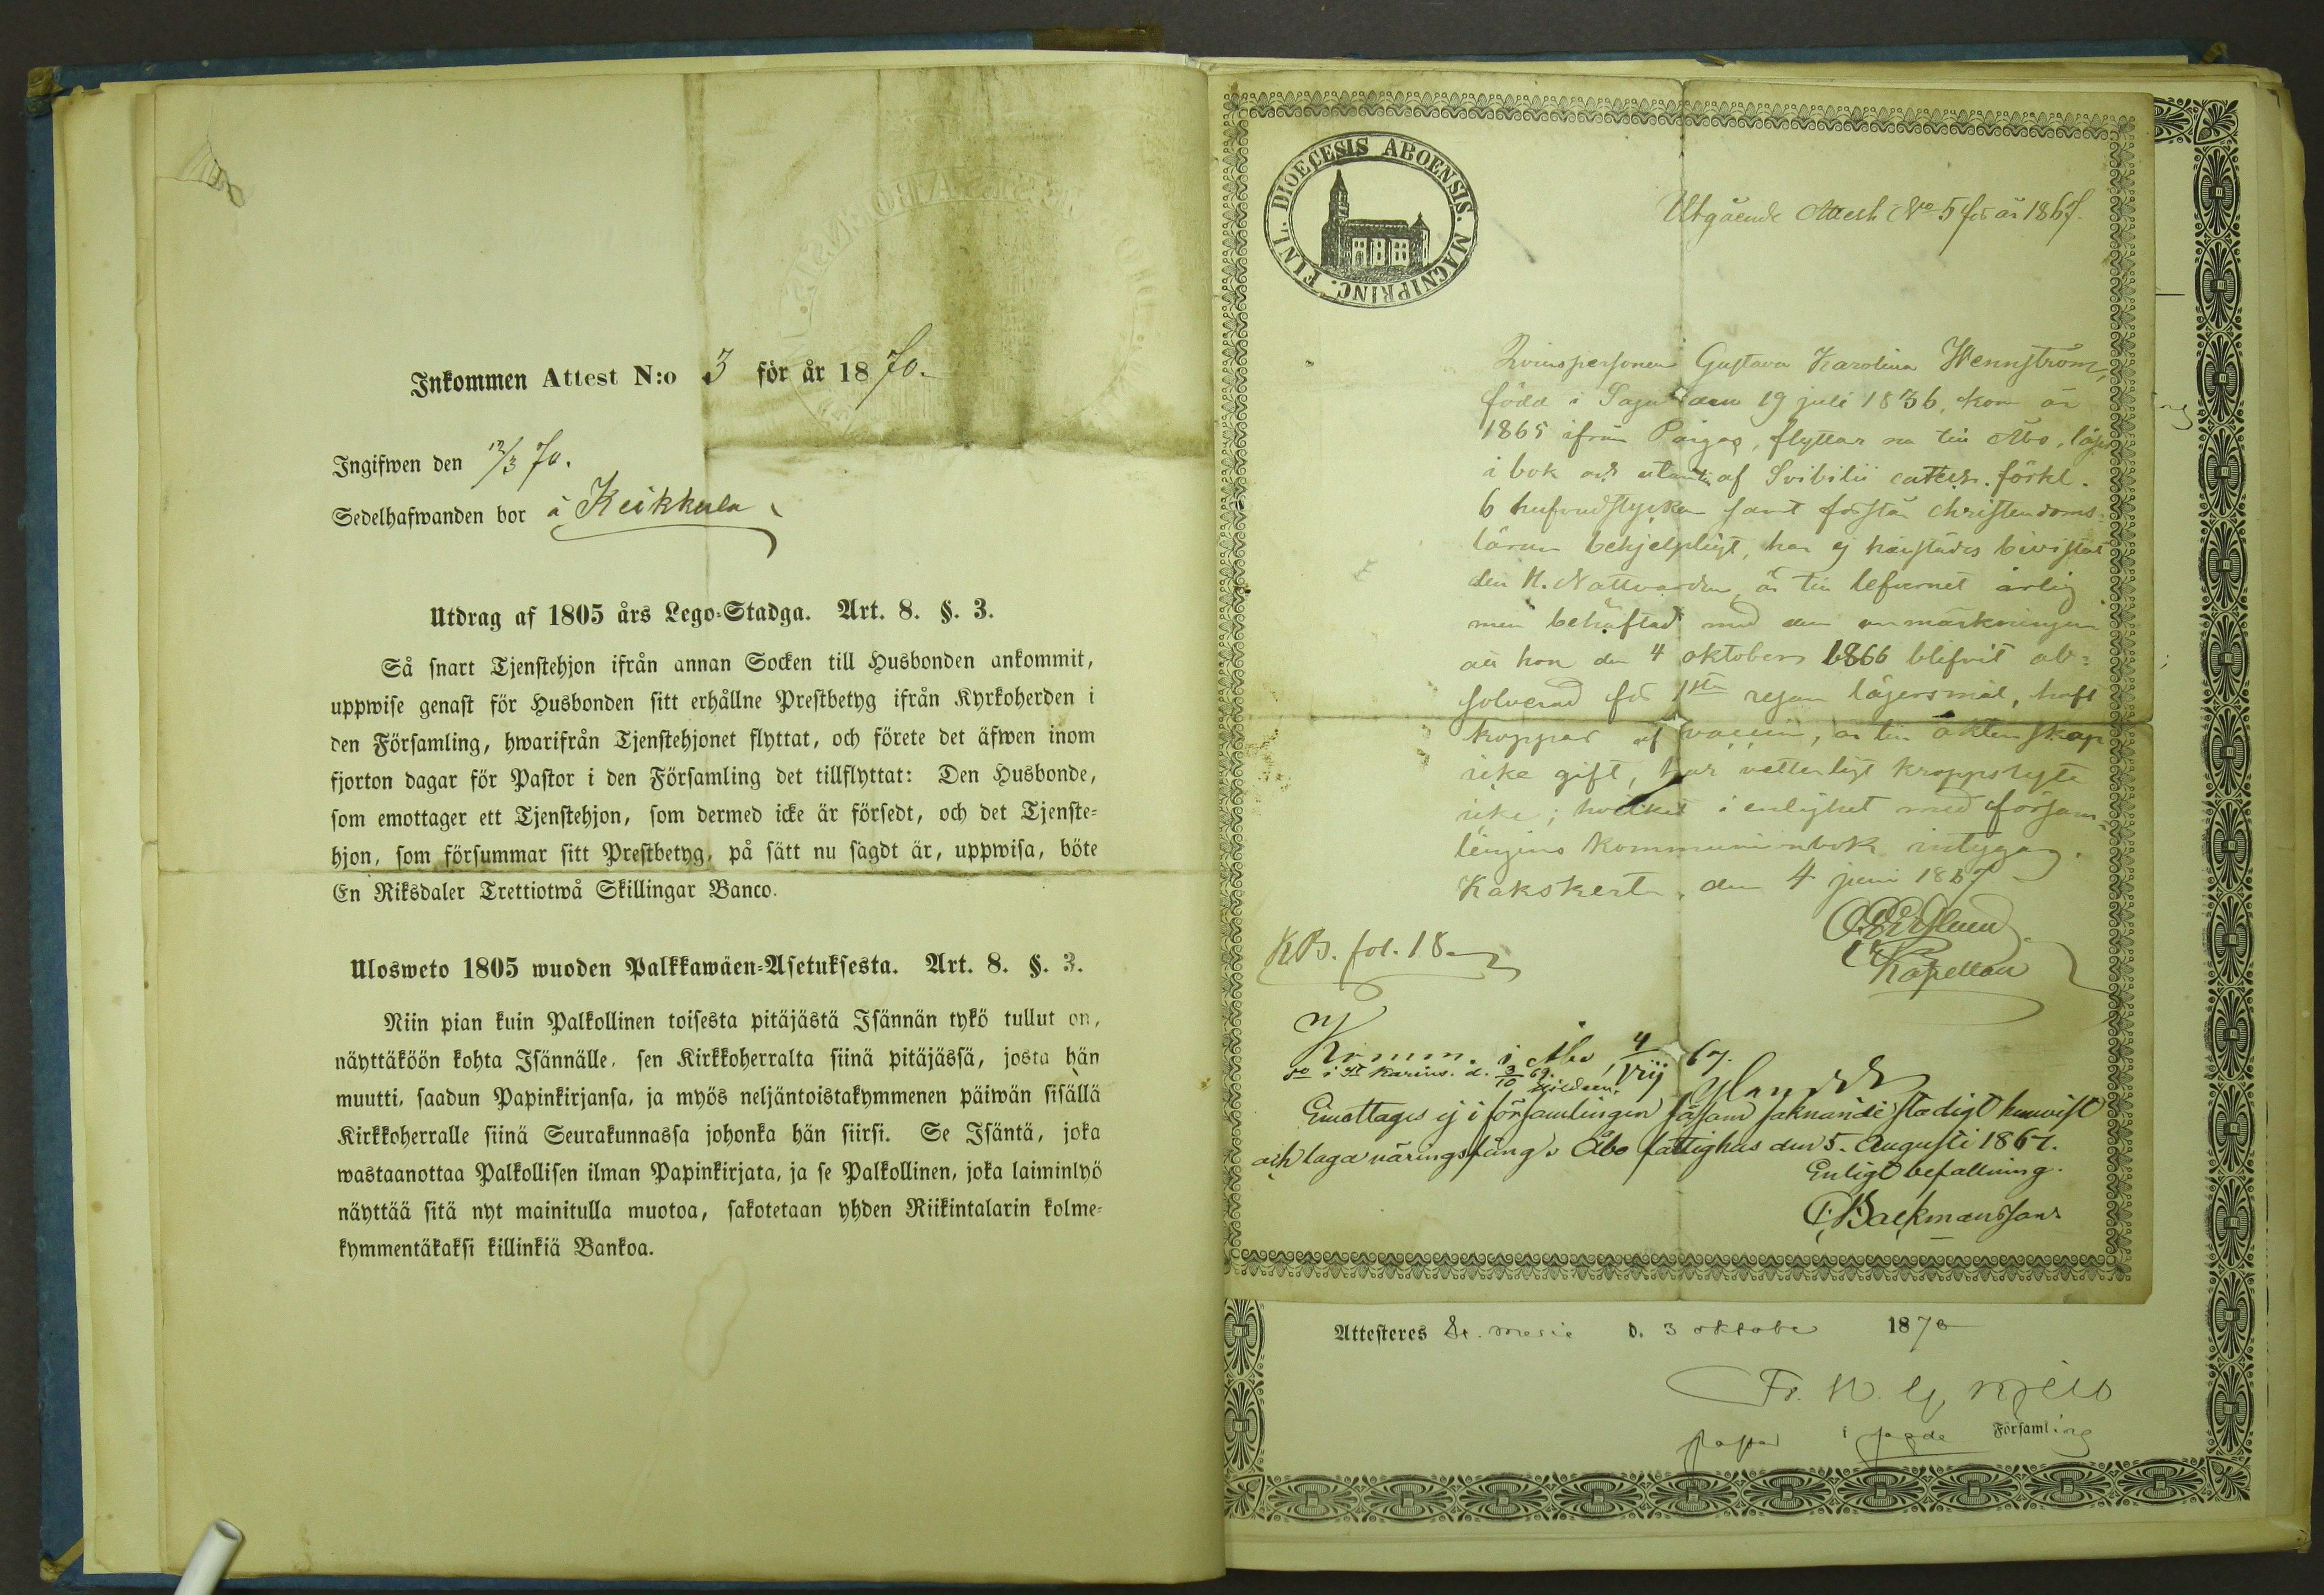 Inkommen Attest N:o 3 för år 1870.
Ingifwen den 12/3 70.
Sedelhafwanden bor å Keikkula
Utdrag af 1805 års Lego-Stadga. Art. 8. §. 3.
Så snart Tjenstehjon ifrån annan Socken till Husbonden ankommit,
uppwise genast för Husbonden sitt erhållne Prestbetyg ifrån Kyrkoherden i
den Församling, hwarifrån Tjenstehjonet flyttat, och förete det äfwen inom
fjorton dagar för Pastor i den Församling det tillflyttat: Den Husbonde,
som emottager ett Tjenstehjon, som dermed icke är försedt, och det Tjenste-
hjon, som försummar sitt Prestbetyg, på sätt nu sagdt är, uppwisa, böte
En Riksdaler Trettiotwå Skillingar Banco.
Ulosweto 1805 wuoden Palkkawäen-Asetuksesta. Art. 8. §. 3.
Niin pian kuin Palkollinen toisesta pitäjästä Isännän tykö tullut on,
näyttäköön kohta Isännälle, sen Kirkkoherralta siinä pitäjässä, josta hän
muutti, saadun Papinkirjansa, ja myös neljäntoistakymmenen päiwän sisällä
Kirkkoherralle siinä Seurakunnassa johonka hän siirsi. Se Isäntä, joka
wastaanottaa Palkollisen ilman Papinkirjata, ja se Palkollinen, joka laiminlyö
näyttää sitä nyt mainitulla muotoa, sakotetaan yhden Riikintalarin kolme-
kymmentäkaksi killinkiä Bankoa.
FINL. DIOECESIS ABOENSIS. MAGNIPRINC.
Utgående Attest No 5 för år 1867.
Qvinspersonen Gustava Karolina Wennström,
född i Sagu den 19 juli 1836, kom år
1865 ifrån Pargas, flyttar nu till Åbo, läser
i bok och utantill af Svibilii cateches. förkl.
6 hufvudstycken samt förstår christendoms-
läran behjelpligt, har ej härstädes bevistat
den H. Nattvarden, är till lefvernet ärlig
men behäftad med den anmärkningen
att hon den 4 oktober 1866 blifvit ab-
solverad för 1sta resan lägersmål, haft
koppor af vaccin, är till äktenskap
icke gift, har vetterligt kroppslyte
icke; hvilket i enlighet med försam-
lingens kommunionbok intygas.
Kakskerta, den 4 juni 1867
Kapellan
K.B. fol. 18
Åbo 4/VIII 67.
do i St Karins. d. 3/10 69.
Emottages ej i församlingen såsom saknande stadigt hemvist
och laga näringsfång. Åbo fattighus den 5. Augusti 1867.
Enligt befallning.
Backmansson
Attesteres St. Marie d. 3 oktober 1870
Fr. W. G. Hjelt
pastor i sagde Församling